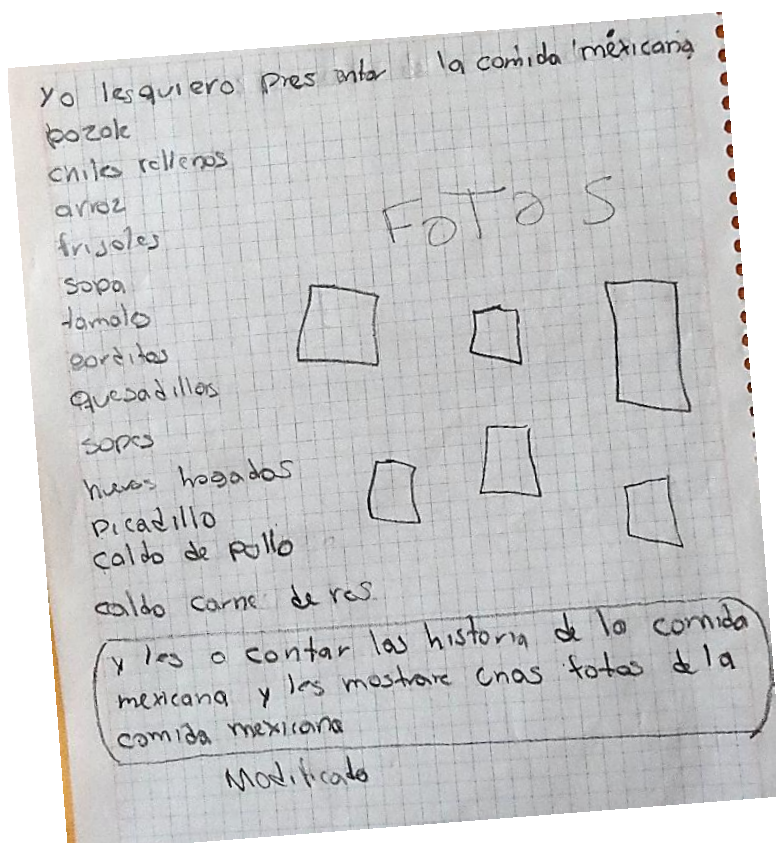 yo les quiero pres entar la comida mexicana
pozole
chiles rellenos
arroz
frijoles
FOTOS
sopa
tamale
gorditas
quesadillas
sopes
huevos hogados
picadillo
caldo de pollo
caldo carne de res
y les o contar las historia de la comida
mexicana y les mostrare unas fotos de la
comida mexicana
Modificado